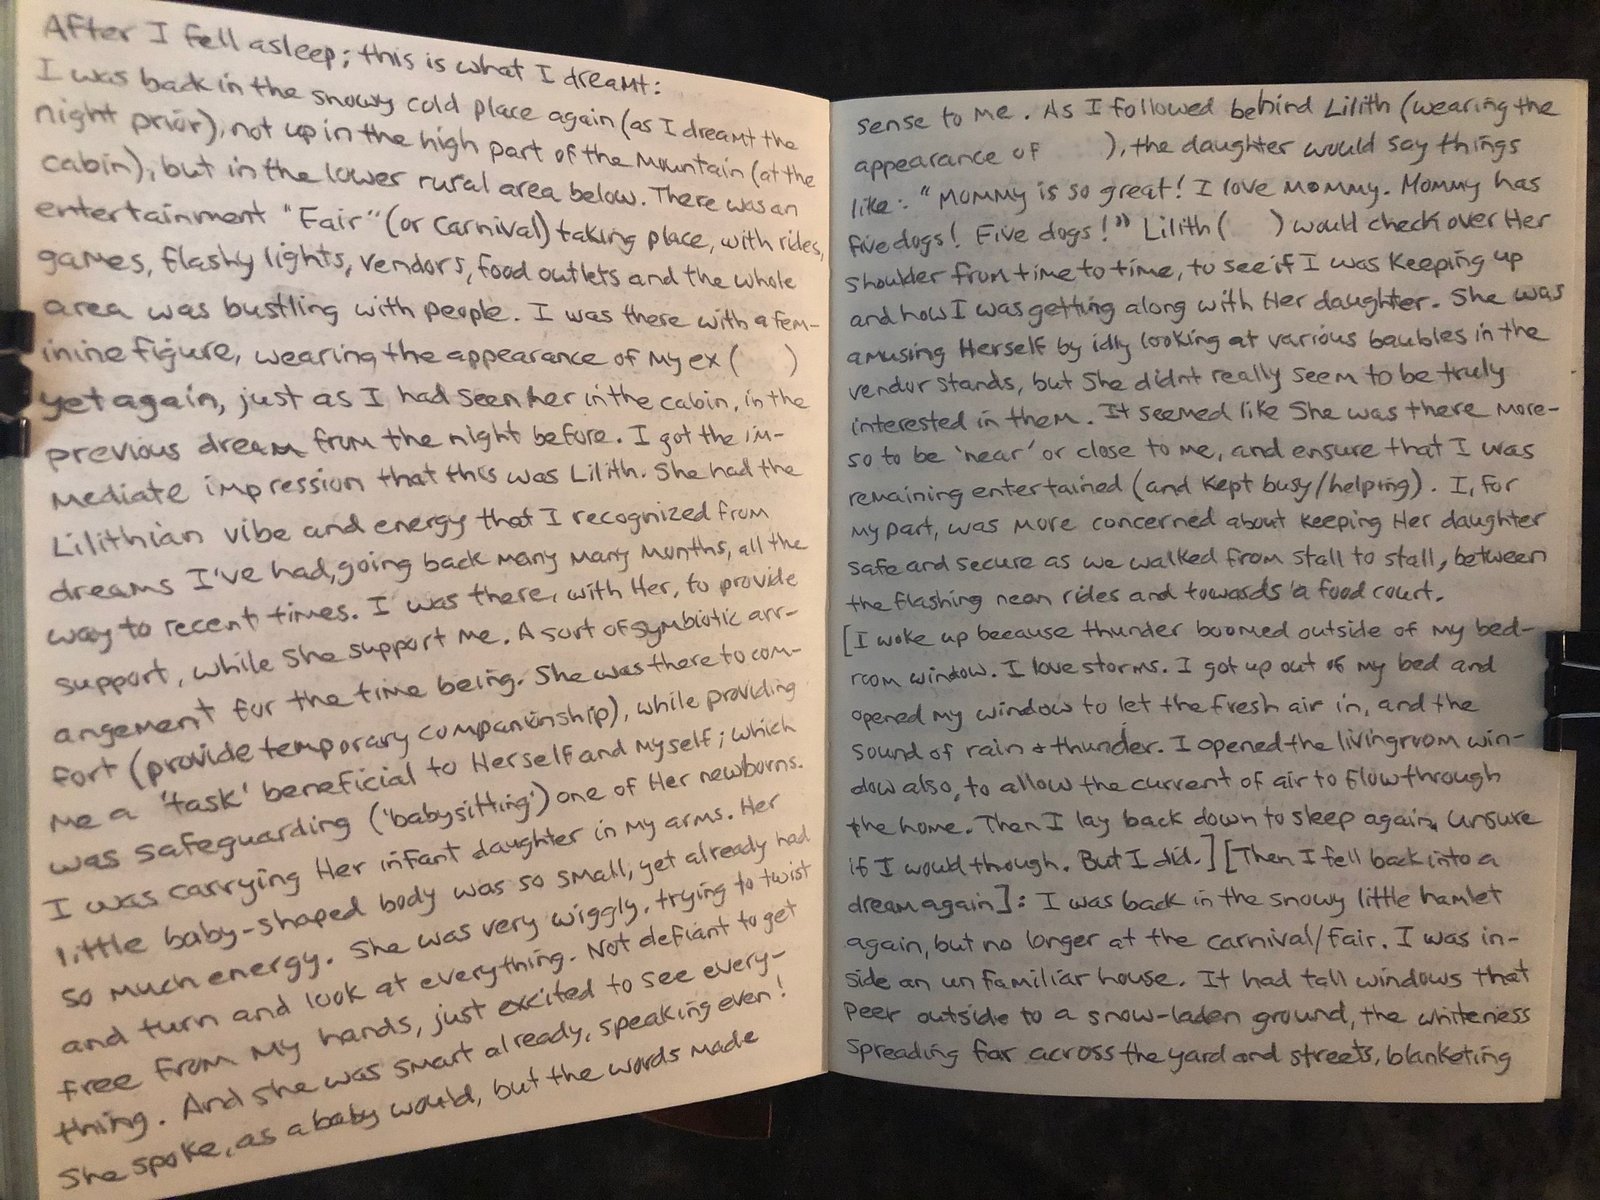 After I fell asleep; this is what I dreamt:
I was back in the snowy cold place again (as I dreamt the
night prior), not up in the high part of the mountain (at the
cabin), but in the lower rural area below. There was an
entertainment "Fair" (or carnival) taking place, with rides,
games, flashy lights, vendors, food outlets and the whole
area was bustling with people. I was there with a fem-
inine figure, wearing the appearance of my ex (      )
yet again, just as I had seen her in the cabin, in the
previous dream from the night before. I got the im-
mediate impression that this was Lilith. She had the
Lilithian vibe and energy that I recognized from
dreams I've had, going back many many months, all the
way to recent times. I was there, with Her, to provide
support, while She support me. A sort of symbiotic arr-
angement for the time being. She was there to com-
fort (provide temporary companionship), while providing
me a 'task' beneficial to Herself and myself; which
was safeguarding ('babysitting') one of Her newborns.
I was carrying Her infant daughter in my arms. Her
little baby-shaped body was so small, yet already had
so much energy. She was very wiggly, trying to twist
and turn and look at everything. Not defiant to get
free from my hands, just excited to see every-
thing. And she was smart already, speaking even!
She spoke, as a baby would, but the words made
sense to me. As I followed behind Lilith (wearing the
appearance of      ), the daughter would say things
like: "Mommy is so great! I love mommy. Mommy has
five dogs! Five dogs!" Lilith (     ) would check over Her
shoulder from time to time, to see if I was keeping up
and how I was getting along with Her daughter. She was
amusing Herself by idly looking at various baubles in the
vendor stands, but She didnt really seem to be truly
interested in them. It seemed like She was there more-
so to be 'near' or close to me, and ensure that I was
remaining entertained (and kept busy/helping). I, for
my part, was more concerned about keeping Her daughter
safe and secure as we walked from stall to stall, between
the flashing neon rides and towards a food court.
[I woke up because thunder boomed outside of my bed-
room window. I love storms. I got up out of my bed and
opened my window to let the fresh air in, and the
sound of rain & thunder. I opened the livingroom win-
dow also, to allow the current of air to flow through
the home. Then I lay back down to sleep again, unsure
if I would though. But I did.] [Then I fell back into a
dream again]: I was back in the snowy little hamlet
again, but no longer at the carnival/fair. I was in-
side an unfamiliar house. It had tall windows that
peer outside to a snow-laden ground, the whiteness
spreading far across the yard and streets, blanketing